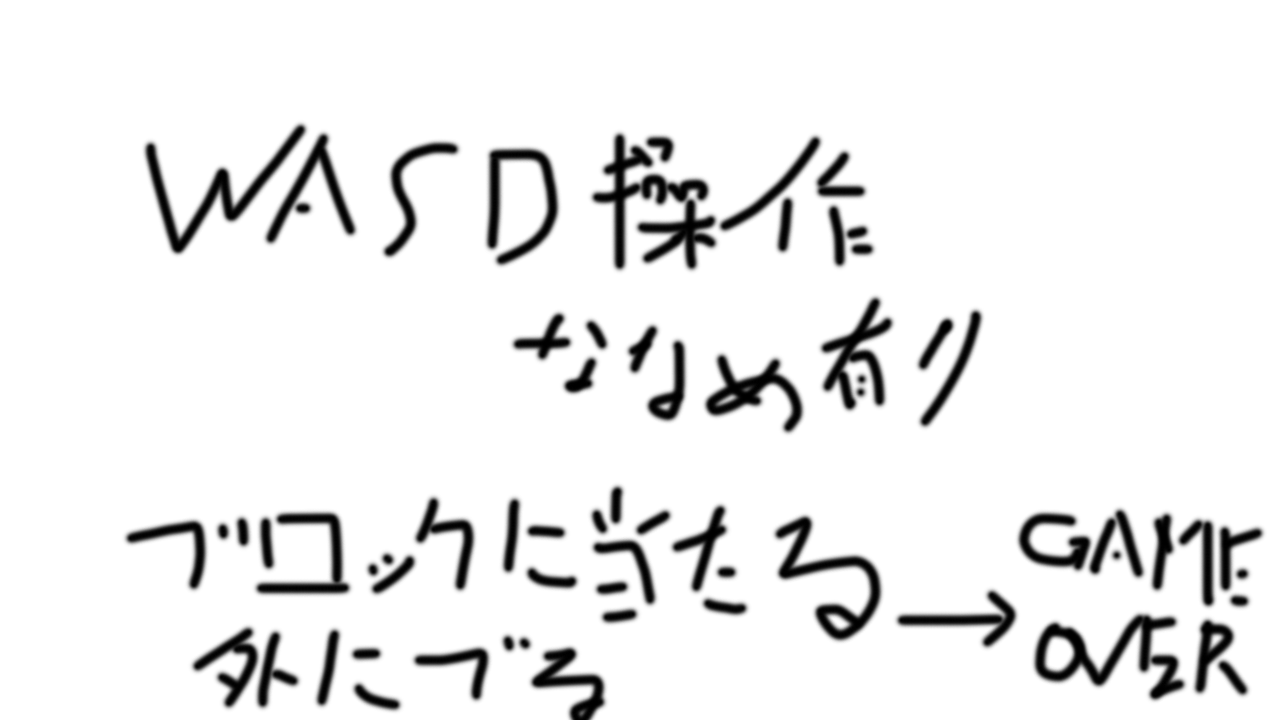 WASD操作
ななめ有り
ブロックに当たる
外にでる
→ GAME
OVER